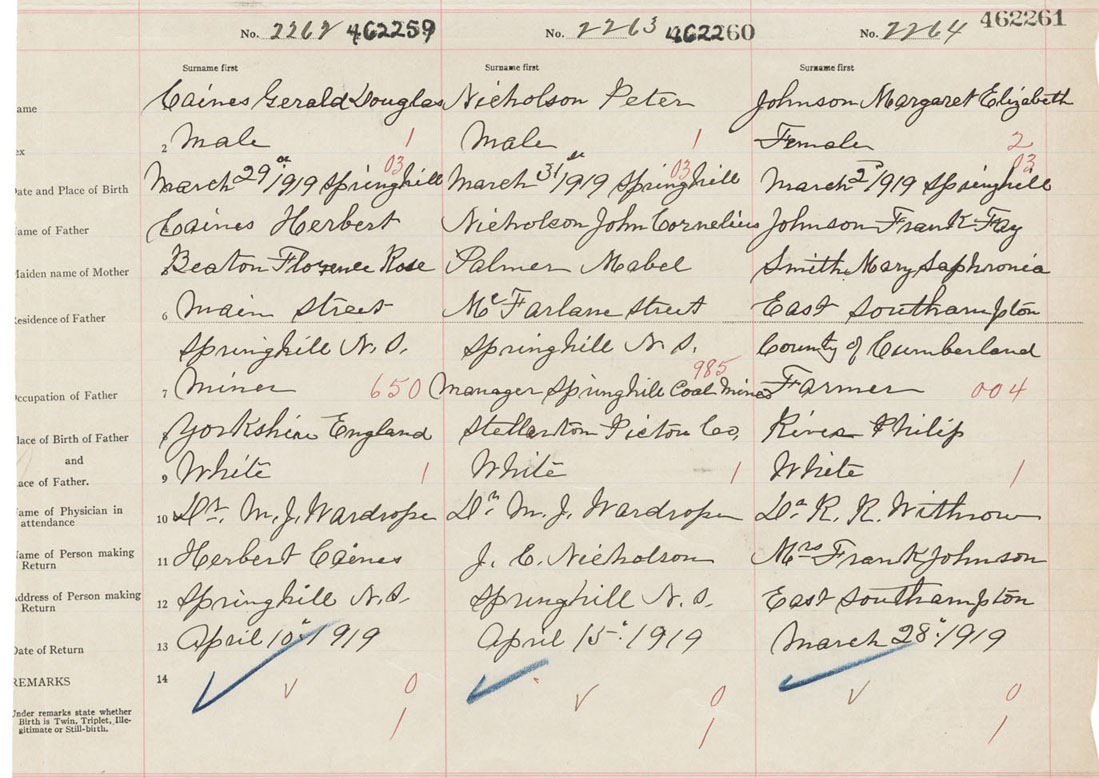 No. 2262 462259 No. 2263 462260 No. 2264 462261
Surname first Surname first Surname first
ame Caines Gerald Douglas Nicholson Peter Johnson Margaret Elizabeth
ex 2 Male 1 Male 1 Female 2
03 03 03
ate and Place of Birth March 29th 1919 Springhill March 31st 1919 Springhill March 2nd 1919 Springhill
ame of Father Caines Herbert Nicholson John Cornelius Johnson Frank Fay
Maiden name of Mother Beaton Florence Rose Palmer Mabel Smith Mary Saphronia
esidence of Father 6 Main Street McFarlane Street East Southampton
Springhill N.S. Springhill N.S. County of Cumberland
985
ccupation of Father 7 Miner 650 Manager Springhill Coal Mines Farmer 004
lace of Birth of Father 8 Yorkshire England Stellarton Pictou Co. River Philip
and
ace of Father. 9 White 1 White 1 White 1
ame of Physician in attendance 10 Dr. M. J. Wardrope Dr. M. J. Wardrope Dr. R. R. Withrow
ame of Person making Return 11 Herbert Caines J. C. Nicholson Mrs Frank Johnson
ddress of Person making Return 12 Springhill N.S. Springhill N.S. East Southampton
ate of Return 13 April 10" 1919 April 15" 1919 March 28" 1919
REMARKS 14
0 0 0
Under remarks state whether
Birth is Twin, Triplet, Ille-
gitimate or Still-birth.
1 1 1